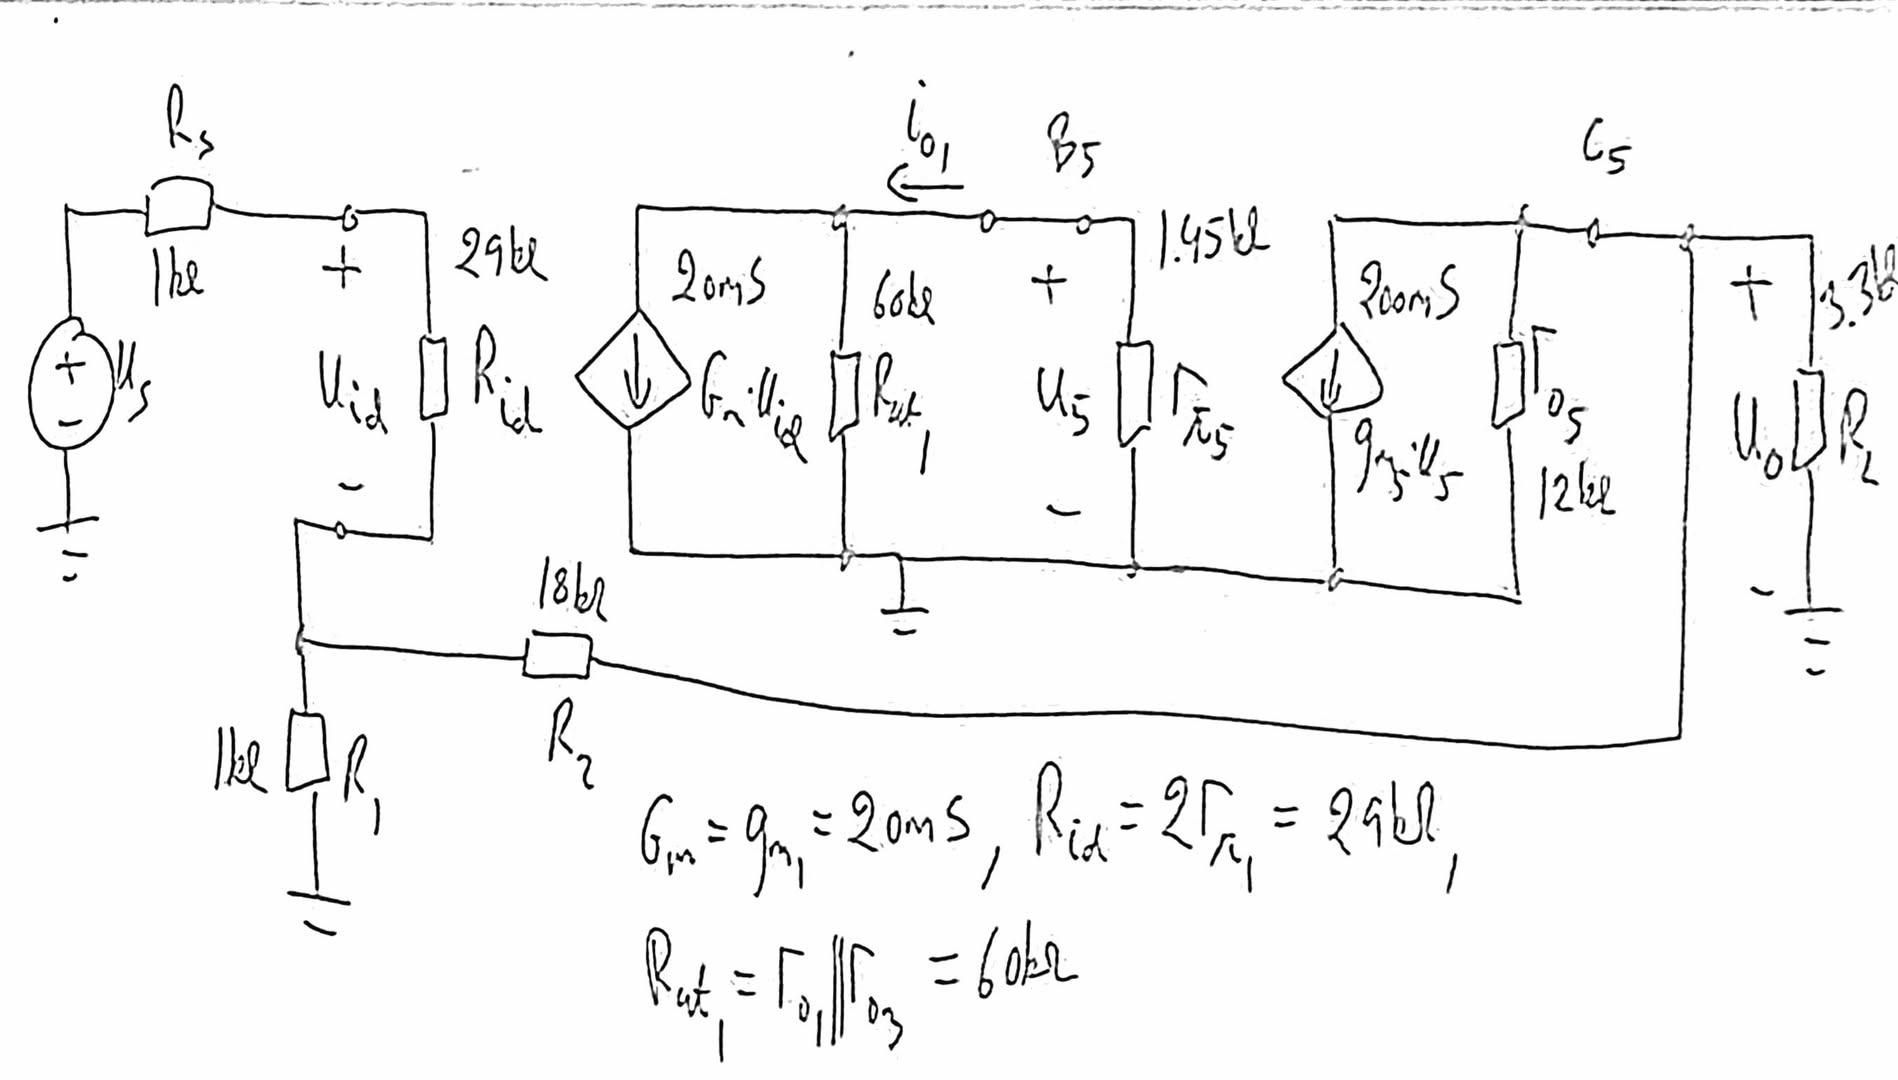 Rs
1kΩ
us
+
-
+
uid
-
29kΩ
Rid
20mS
Gm·uid
60kΩ
Rut1
io1
B5
+
u5
-
1.45kΩ
rπ5
200mS
gm5·u5
ro5
12kΩ
C5
+
uo
-
3.3kΩ
RL
18kΩ
R2
1kΩ
R1
Gm = gm1 = 20mS, Rid = 2rπ1 = 29kΩ,
Rut1 = ro1||ro3 = 60kΩ